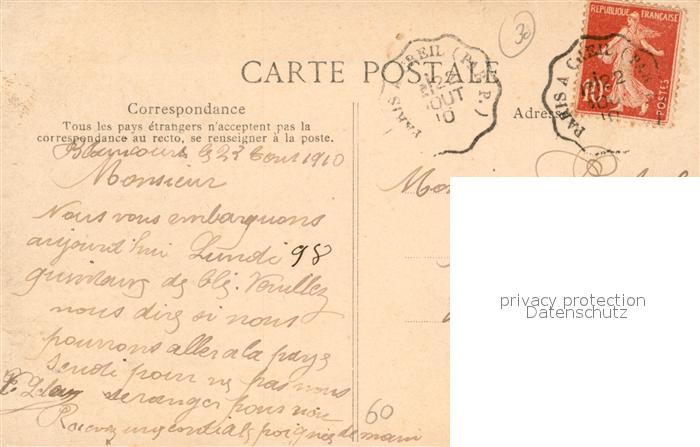 30
REPUBLIQUE FRANÇAISE
10c
POSTES
PARIS A CREIL (PAR P.)
22
AOUT
10
PARIS A CREIL (PAR
22
10
CARTE POSTALE
Correspondance
Tous les pays étrangers n'acceptent pas la
correspondance au recto, se renseigner à la poste.
Adres
le 22 Aout 1910
Monsieur
Nous vous embarquons
aujourd'hui Lundi 98
quintaux de blé. Veuillez
nous dire si nous
pourrons aller a la paye
Jeudi pour ne pas nous
deranger pour rien
Recevez une cordiale poignée de main
Mon
60
privacy protection
Datenschutz